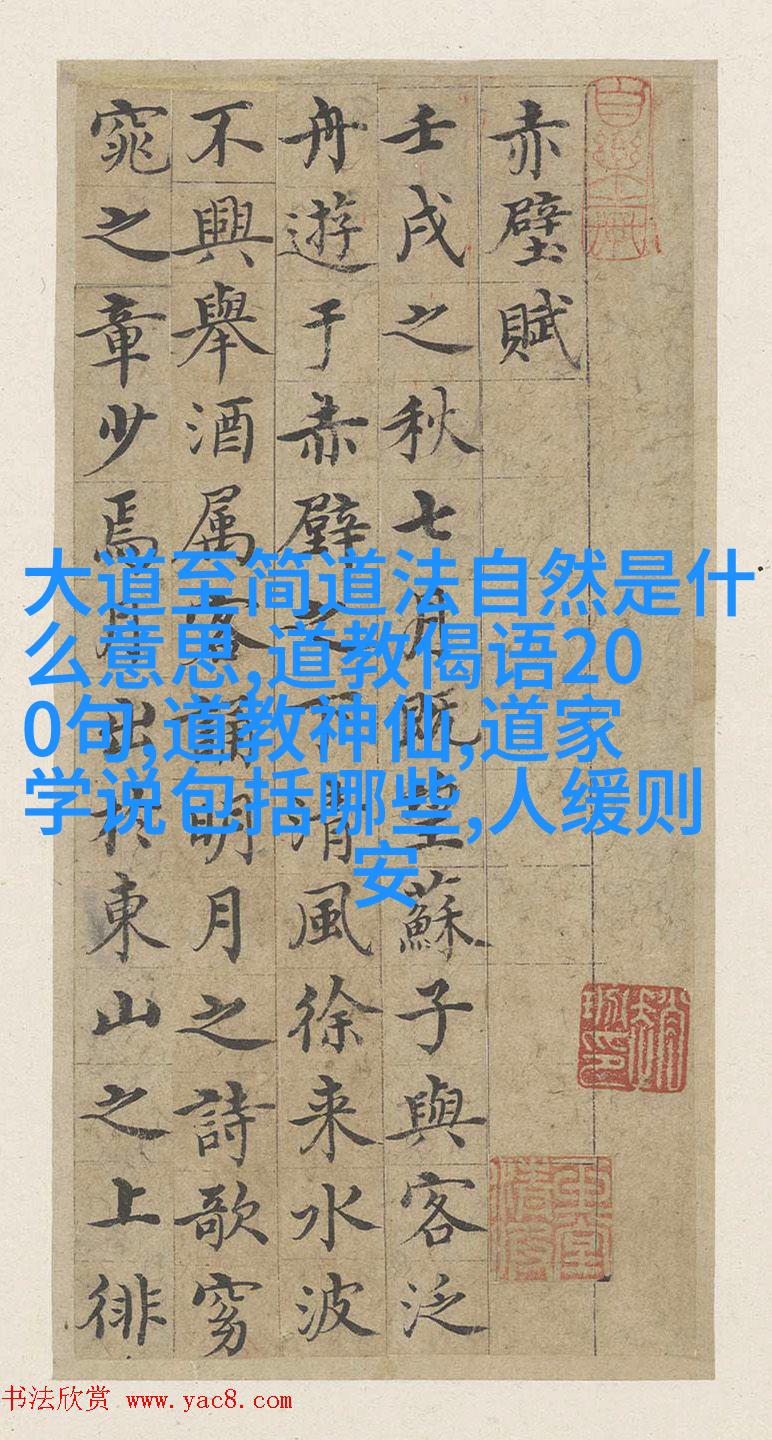 赤壁賦
壬戌之秋七月既望蘇子與客泛
舟遊于赤壁之下清風徐来水波
不興舉酒属客誦明月之詩歌窈
窕之章少焉月出於東山之上徘
大道至简道法自然是什
么意思,道教偈语20
0句,道教神仙,道家
学说包括哪些,人缓则
安
书法欣赏 www.yac8.com